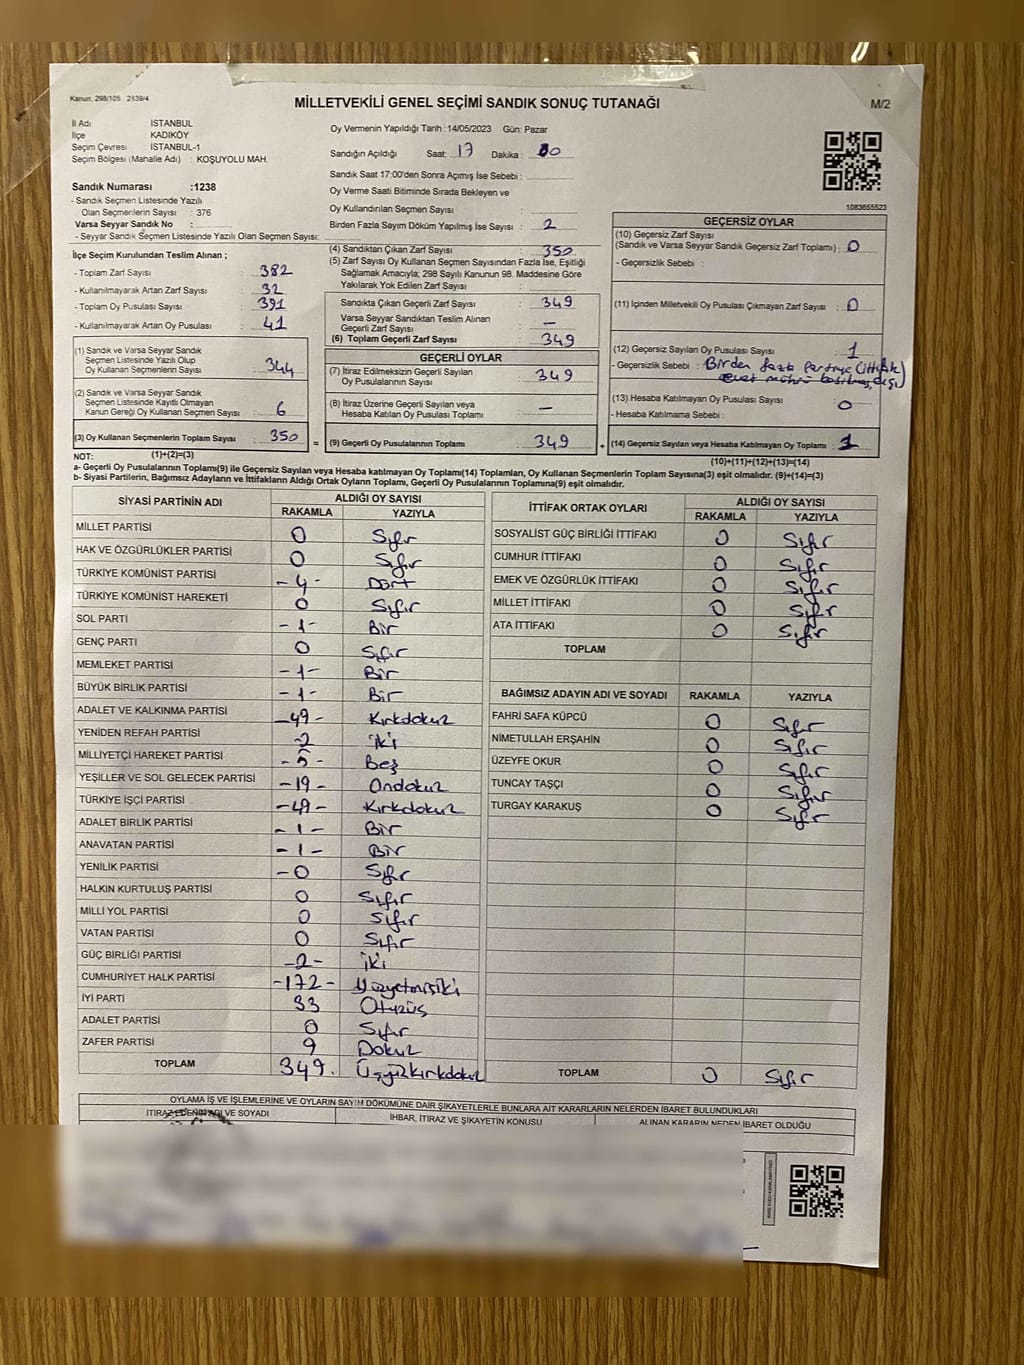 Kanun: 298/105 2839/4
MİLLETVEKİLİ GENEL SEÇİMİ SANDIK SONUÇ TUTANAĞI
M/2
İl Adı : İSTANBUL
İlçe : KADIKÖY
Seçim Çevresi : İSTANBUL-1
Seçim Bölgesi (Mahalle Adı) : KOŞUYOLU MAH.
Sandık Numarası :1238
- Sandık Seçmen Listesinde Yazılı
Olan Seçmenlerin Sayısı : 376
Varsa Seyyar Sandık No :
- Seyyar Sandık Seçmen Listesinde Yazılı Olan Seçmen Sayısı:
İlçe Seçim Kurulundan Teslim Alınan ;
- Toplam Zarf Sayısı : 382
- Kullanılmayarak Artan Zarf Sayısı : 32
- Toplam Oy Pusulası Sayısı : 391
- Kullanılmayarak Artan Oy Pusulası : 41
(1) Sandık ve Varsa Seyyar Sandık
Seçmen Listesinde Yazılı Olup
Oy Kullanan Seçmenlerin Sayısı : 344
(2) Sandık ve Varsa Seyyar Sandık
Seçmen Listesinde Kayıtlı Olmayan
Kanun Gereği Oy Kullanan Seçmen Sayısı : 6
(3) Oy Kullanan Seçmenlerin Toplam Sayısı : 350
(1)+(2)=(3)
Oy Vermenin Yapıldığı Tarih :14/05/2023 Gün: Pazar
Sandığın Açıldığı Saat: 17 Dakika : 00
Sandık Saat 17:00'den Sonra Açmış İse Sebebi :
Oy Verme Saati Bitiminde Sırada Bekleyen ve
Oy Kullandırılan Seçmen Sayısı :
Birden Fazla Sayım Döküm Yapılmış İse Sayısı : 2
(4) Sandıktan Çıkan Zarf Sayısı : 350
(5) Zarf Sayısı Oy Kullanan Seçmen Sayısından Fazla İse, Eşitliği
Sağlamak Amacıyla; 298 Sayılı Kanunun 98. Maddesine Göre
Yakılarak Yok Edilen Zarf Sayısı :
Sandıkta Çıkan Geçerli Zarf Sayısı : 349
Varsa Seyyar Sandıktan Teslim Alınan
Geçerli Zarf Sayısı : —
(6) Toplam Geçerli Zarf Sayısı : 349
GEÇERLİ OYLAR
(7) İtiraz Edilmeksizin Geçerli Sayılan
Oy Pusulalarının Sayısı : 349
(8) İtiraz Üzerine Geçerli Sayılan veya
Hesaba Katılan Oy Pusulası Toplamı : —
= (9) Geçerli Oy Pusulalarının Toplamı : 349
1083655523
GEÇERSİZ OYLAR
(10) Geçersiz Zarf Sayısı
(Sandık ve Varsa Seyyar Sandık Geçersiz Zarf Toplamı) : 0
- Geçersizlik Sebebi :
(11) İçinden Milletvekili Oy Pusulası Çıkmayan Zarf Sayısı : 0
(12) Geçersiz Sayılan Oy Pusulası Sayısı : 1
- Geçersizlik Sebebi : Birden fazla Partiye (ittifak
evet mührü basılmış dışı)
(13) Hesaba Katılmayan Oy Pusulası Sayısı : 0
- Hesaba Katılmama Sebebi :
+ (14) Geçersiz Sayılan veya Hesaba Katılmayan Oy Toplamı : 1
(10)+(11)+(12)+(13)=(14)
NOT:
a- Geçerli Oy Pusulalarının Toplamı(9) ile Geçersiz Sayılan veya Hesaba katılmayan Oy Toplamı(14) Toplamları, Oy Kullanan Seçmenlerin Toplam Sayısına(3) eşit olmalıdır. (9)+(14)=(3)
b- Siyasi Partilerin, Bağımsız Adayların ve İttifakların Aldığı Ortak Oyların Toplamı, Geçerli Oy Pusulalarının Toplamına(9) eşit olmalıdır.
SİYASİ PARTİNİN ADI ALDIĞI OY SAYISI
RAKAMLA YAZIYLA
MİLLET PARTİSİ 0 Sıfır
HAK VE ÖZGÜRLÜKLER PARTİSİ 0 Sıfır
TÜRKİYE KOMÜNİST PARTİSİ -4- Dört
TÜRKİYE KOMÜNİST HAREKETİ 0 Sıfır
SOL PARTİ -1- Bir
GENÇ PARTİ 0 Sıfır
MEMLEKET PARTİSİ -1- Bir
BÜYÜK BİRLİK PARTİSİ -1- Bir
ADALET VE KALKINMA PARTİSİ -49- Kırkdokuz
YENİDEN REFAH PARTİSİ -2 iki
MİLLİYETÇİ HAREKET PARTİSİ -5- Beş
YEŞİLLER VE SOL GELECEK PARTİSİ -19- Ondokuz
TÜRKİYE İŞÇİ PARTİSİ -49- Kırkdokuz
ADALET BİRLİK PARTİSİ -1- Bir
ANAVATAN PARTİSİ -1- Bir
YENİLİK PARTİSİ -0 Sıfır
HALKIN KURTULUŞ PARTİSİ 0 Sıfır
MİLLİ YOL PARTİSİ 0 Sıfır
VATAN PARTİSİ 0 Sıfır
GÜÇ BİRLİĞİ PARTİSİ -2- İki
CUMHURİYET HALK PARTİSİ -172- Yüzyetmişiki
İYİ PARTİ 33 Otuzüç
ADALET PARTİSİ 0 Sıfır
ZAFER PARTİSİ 9 Dokuz
TOPLAM 349. Üçyüzkırkdokuz
İTTİFAK ORTAK OYLARI ALDIĞI OY SAYISI
RAKAMLA YAZIYLA
SOSYALİST GÜÇ BİRLİĞİ İTTİFAKI 0 Sıfır
CUMHUR İTTİFAKI 0 Sıfır
EMEK VE ÖZGÜRLÜK İTTİFAKI 0 Sıfır
MİLLET İTTİFAKI 0 Sıfır
ATA İTTİFAKI 0 Sıfır
TOPLAM
BAĞIMSIZ ADAYIN ADI VE SOYADI RAKAMLA YAZIYLA
FAHRİ SAFA KÜPCÜ 0 Sıfır
NİMETULLAH ERŞAHİN 0 Sıfır
ÜZEYFE OKUR 0 Sıfır
TUNCAY TAŞÇI 0 Sıfır
TURGAY KARAKUŞ 0 Sıfır
TOPLAM 0 Sıfır
OYLAMA İŞ VE İŞLEMLERİNE VE OYLARIN SAYIM DÖKÜMÜNE DAİR ŞİKAYETLERLE BUNLARA AİT KARARLARIN NELERDEN İBARET BULUNDUKLARI
İTİRAZ EDENİN ADI VE SOYADI İHBAR, İTİRAZ VE ŞİKAYETİN KONUSU ALINAN KARARIN NEDEN İBARET OLDUĞU